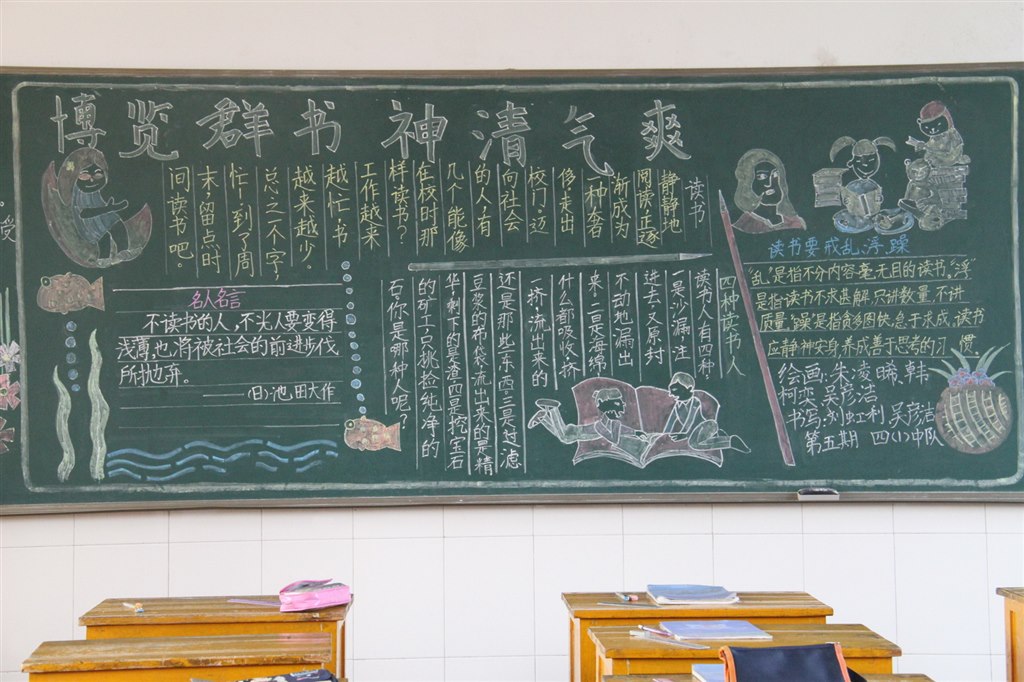 博览群书 神清气爽
受
读书
静静地
阅读正逐
渐成为
一种奢
侈。走出
校门,迈
向社会
的人,有
几个能像
在校时那
样读书?
工作越来
越忙,书
越来越少。
总之一个字,
忙。到了周
末,留点时
间读书吧。
名人名言
不读书的人,不光人要变得
浅薄,也将被社会的前进步伐
所抛弃。
——(日)池田大作
四种读书人
读书人有四种
一是沙漏,注
进去又原封
不动地漏出
来。二是海绵
什么都吸收,挤
一挤,流出来的
还是那些东西。三是过滤
豆浆的布袋,流出来的是精
华,剩下的是渣。四是挖宝石
的矿工,只挑捡纯净的
石,你是哪种人呢?
读书要戒乱、浮、躁
"乱"是指不分内容,毫无目的读书。"浮"
是指读书不求甚解,只讲数量,不讲
质量。"躁"是指贪多图快,急于求成。读书
应静神安身,养成善于思考的习惯。
绘画:朱凌晞、韩
柯奕、吴彦洁
书写:刘虹利 吴彦洁
第五期 四(1)中队